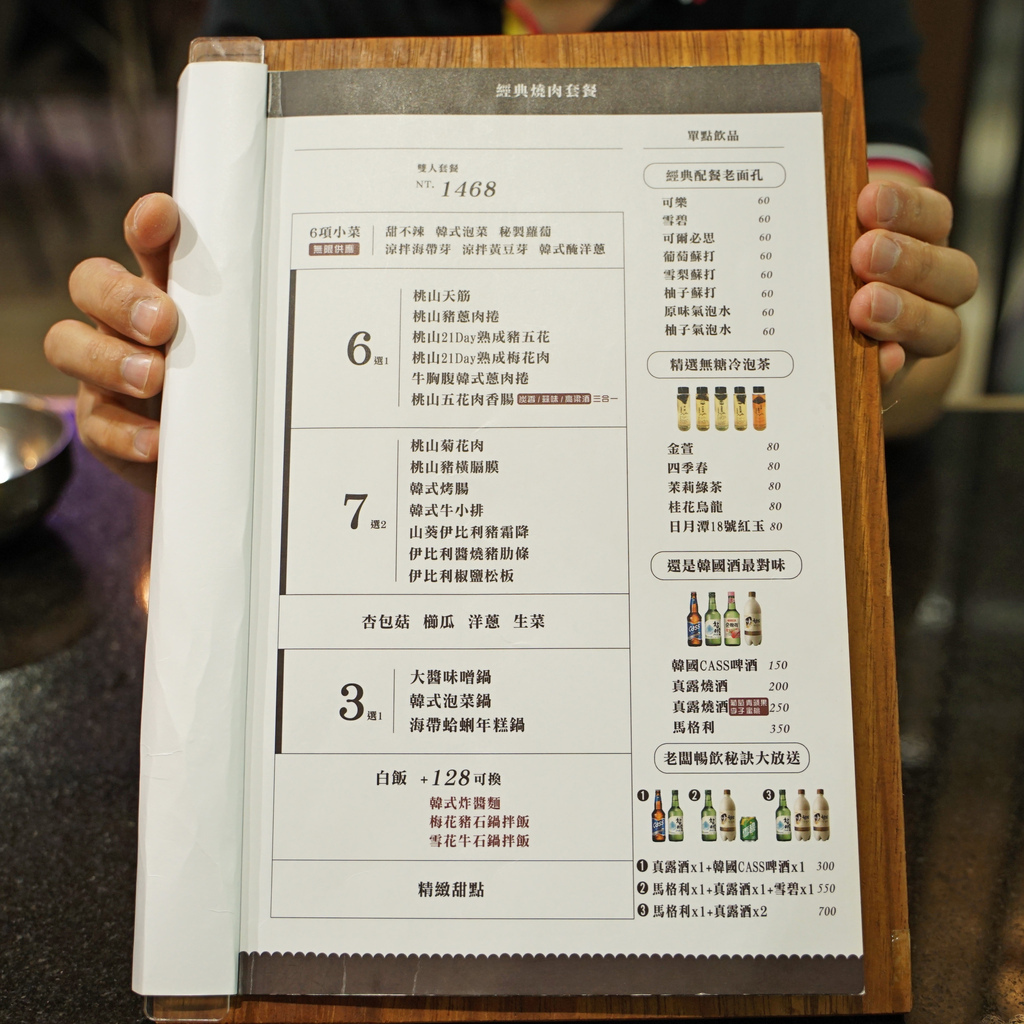 經典燒肉套餐
雙人套餐
NT. 1468
6項小菜
無限供應
甜不辣 韓式泡菜 秘製蘿蔔
涼拌海帶芽 涼拌黃豆芽 韓式醃洋蔥
6選1
桃山天筋
桃山豬蔥肉捲
桃山21Day熟成豬五花
桃山21Day熟成梅花肉
牛胸腹韓式蔥肉捲
桃山五花肉香腸 炭香/蒜味/高粱酒 三合一
7選2
桃山菊花肉
桃山豬橫膈膜
韓式烤腸
韓式牛小排
山葵伊比利豬霜降
伊比利醬燒豬肋條
伊比利椒鹽松板
杏包菇 櫛瓜 洋蔥 生菜
3選1
大醬味噌鍋
韓式泡菜鍋
海帶蛤蜊年糕鍋
白飯 +128可換
韓式炸醬麵
梅花豬石鍋拌飯
雪花牛石鍋拌飯
精緻甜點
單點飲品
經典配餐老面孔
可樂 60
雪碧 60
可爾必思 60
葡萄蘇打 60
雪梨蘇打 60
柚子蘇打 60
原味氣泡水 60
柚子氣泡水 60
精選無糖冷泡茶
金萱 80
四季春 80
茉莉綠茶 80
桂花烏龍 80
日月潭18號紅玉 80
還是韓國酒最對味
韓國CASS啤酒 150
真露燒酒 200
真露燒酒 葡萄 青蘋果 李子 蜜桃 250
馬格利 350
老闆暢飲秘訣大放送
1 2 3
1 真露酒x1+韓國CASS啤酒x1 300
2 馬格利x1+真露酒x1+雪碧x1 550
3 馬格利x1+真露酒x2 700